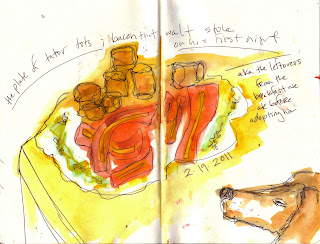 the plate of tator tots & bacon that walt stole
on his first night
aka the leftovers
from the
breakfast we
ate before
adopting him
2.19.2011